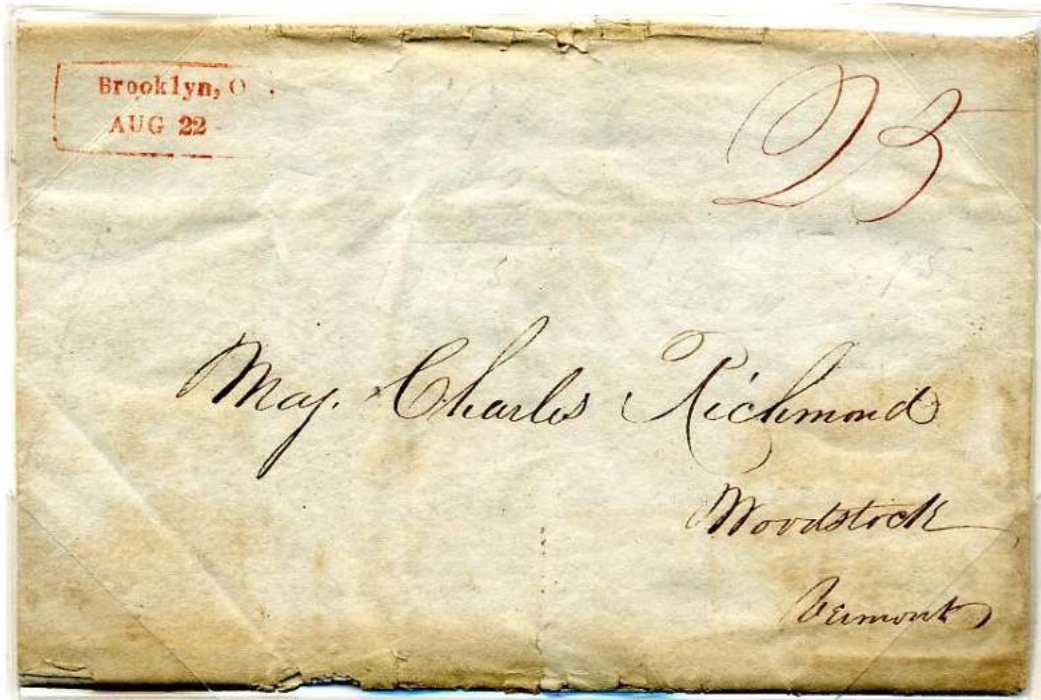 Brooklyn, O.
AUG 22
25
Maj. Charles Richmond
Woodstock
Vermont